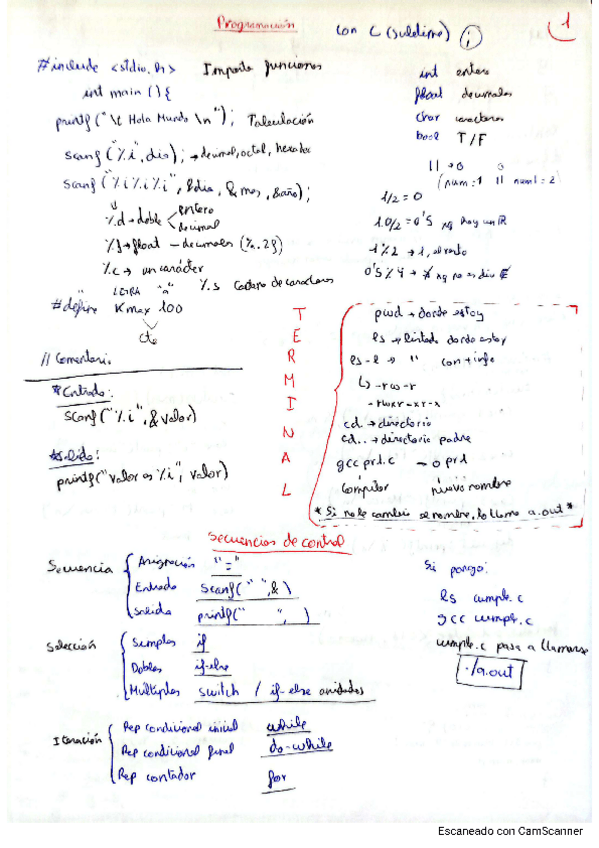 Programación con C (sublime) ; 1
#include <stdio.h> Importa funciones
int main () {
printf ("\t Hola Mundo \n"); Tabulación
scanf ("%i", dia); → decimal, octal, hexadec
scanf ("%i%i%i", &dia, &mes, &año);
%d → doble entero
decimal
%f → float – decimales (%.2f)
%c → un carácter
LETRA "a" %s Cadena de caracteres
#define Kmax 100
cte
// Comentario
*Entrada:
scanf ("%i", &valor)
*Salida:
printf ("valor es %i", valor)
int entero
float decimales
char caracteres
bool T/F
|| → o
(num = 1 || num = 2)
1/2 = 0
1.0/2 = 0'5 xq hay un ℝ
1%2 → 1, el resto
0'5 % 4 → xq no es div
TERMINAL
pwd → donde estoy
ls → listado donde estoy
ls -l → " con + info
↳ -rw-r
-rwxr-xr-x
cd → directorio
cd.. → directorio padre
gcc prd.c -o prd
Compilar nuevo nombre
* Si no le cambio el nombre, lo llama a.out *
Secuencias de control
Secuencia
Asignación "="
Entrada scanf (" ", &)
Salida printf (" ", )
Selección
Simples if
Dobles if-else
Múltiples switch / if-else anidados
Iteración
Rep condicional inicial while
Rep condicional final do-while
Rep contador for
Si pongo:
ls cumple.c
gcc cumple.c
cumple.c pasa a llamarse
./a.out
Escaneado con CamScanner